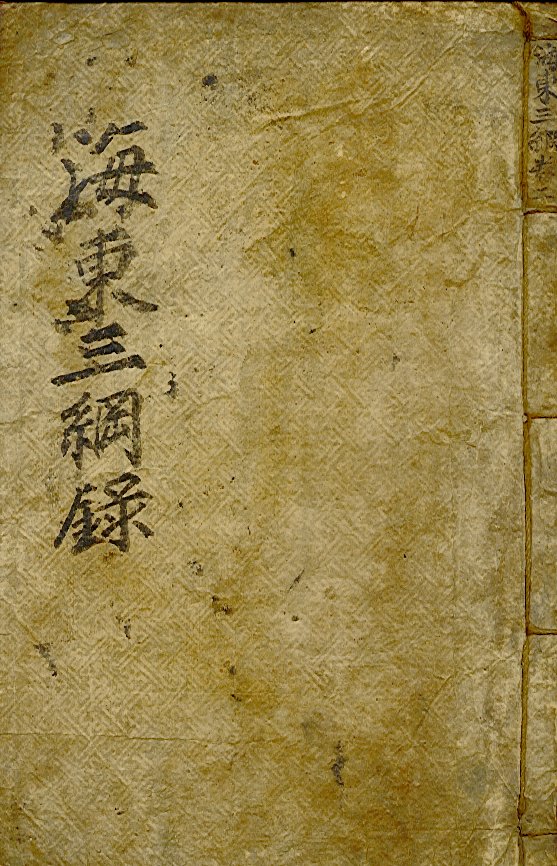 海東三綱錄
海東三綱